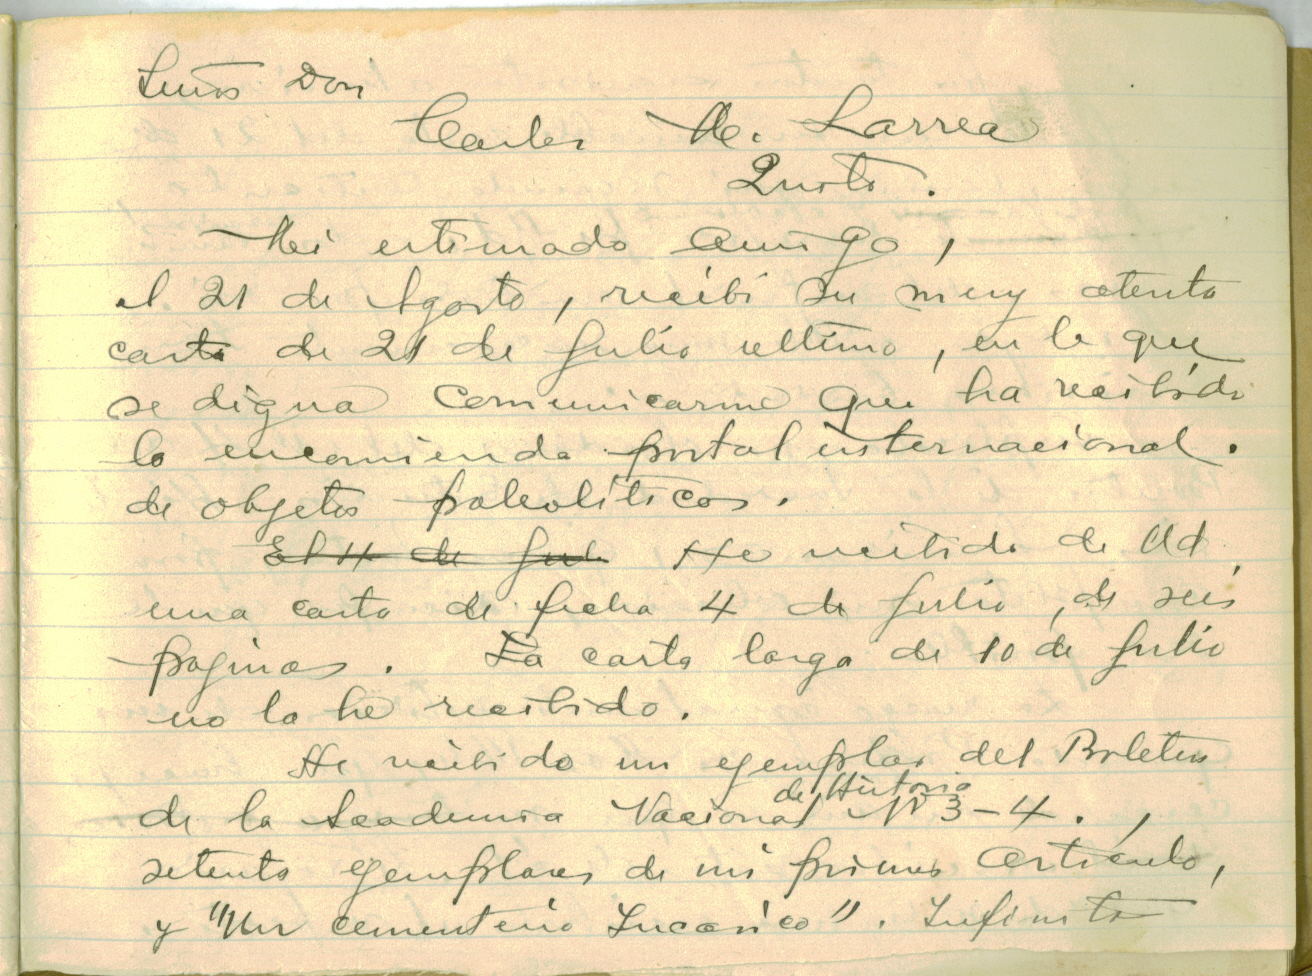 Señor Don
Carlos M. Larrea
Quito.
Mi estimado amigo,
el 21 de Agosto, recibi su muy atenta
carta de 21 de Julio ultimo, en la que
se digna comunicarme que ha recibido
la encomienda postal internacional.
de objetos paleolíticos.
El 4 de Jul. He recibido de Ud
una carta de fecha 4 de Julio, de seis
paginas. La carta larga de 10 de Julio
no la he recibido.
He recibido un ejemplar del Boletin
de la Academia Nacional de Historia Nº 3-4.,
setenta ejemplares de mi primer articulo,
y "Un cementerio Incasico". Infinita